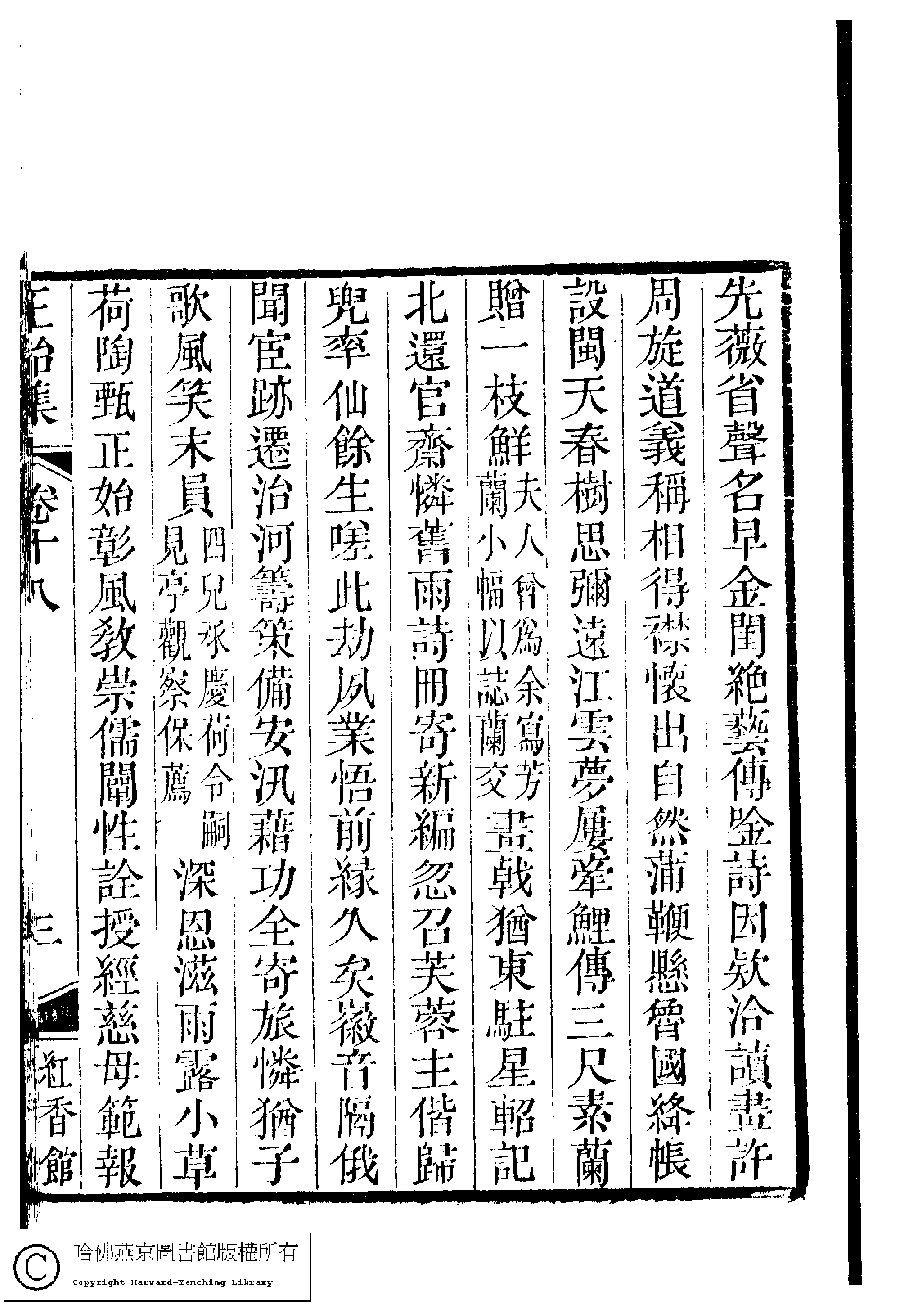 先薇省聲名早金閨絶藝傳唫詩因欵洽讀畫許
周旋道義稱相得襟懷出自然蒲鞭懸魯國絳帳
設閩天春樹思彌遠江雲夢屢牽鯉傳三尺素蘭
贈一枝鮮夫人曾爲余寫芳蘭小幅以誌蘭交畫戟猶東駐星軺記
北還官齋憐舊雨詩冊寄新編忽召芙蓉主偕歸
兜率仙餘生嗟此劫夙業悟前緣久矣徽音隔俄
聞宦跡遷治河籌策備安汛藉功全寄旅憐猶子
歌風笑末員四兒承慶荷令嗣見亭觀察保薦深恩滋雨露小草
荷陶甄正始彰風教崇儒闡性詮授經慈母範報
正始集
卷十八
三
紅香館
哈佛燕京圖書館版權所有
Copyright Harvard-Yenching Library